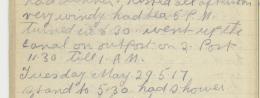 had dinner. Rested all afternoon
very windy had tea 5 P.M.
turned in 6.30. went up the
canal on outpost on 2. Post
11.30 till 1 A.M.
Tuesday May 29.5.17
Stand to 5.30 had shower